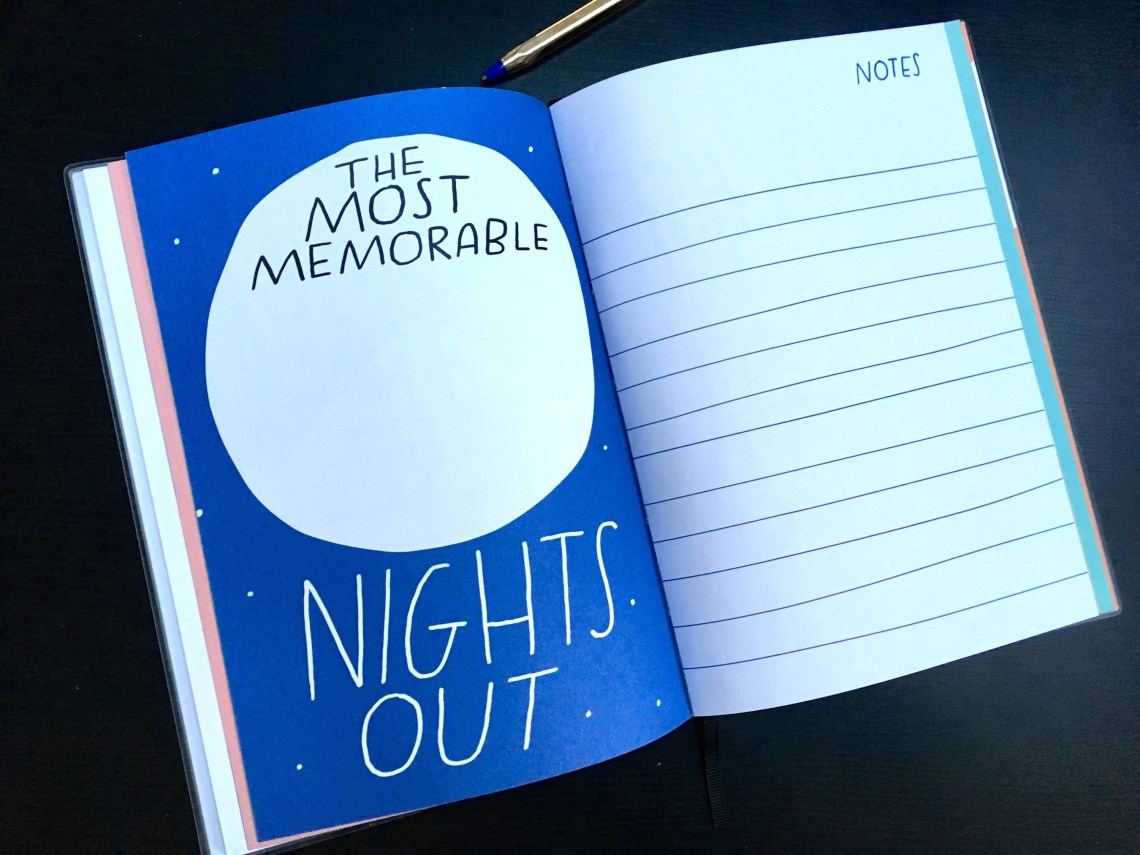 THE
MOST
MEMORABLE
NIGHTS
OUT
NOTES